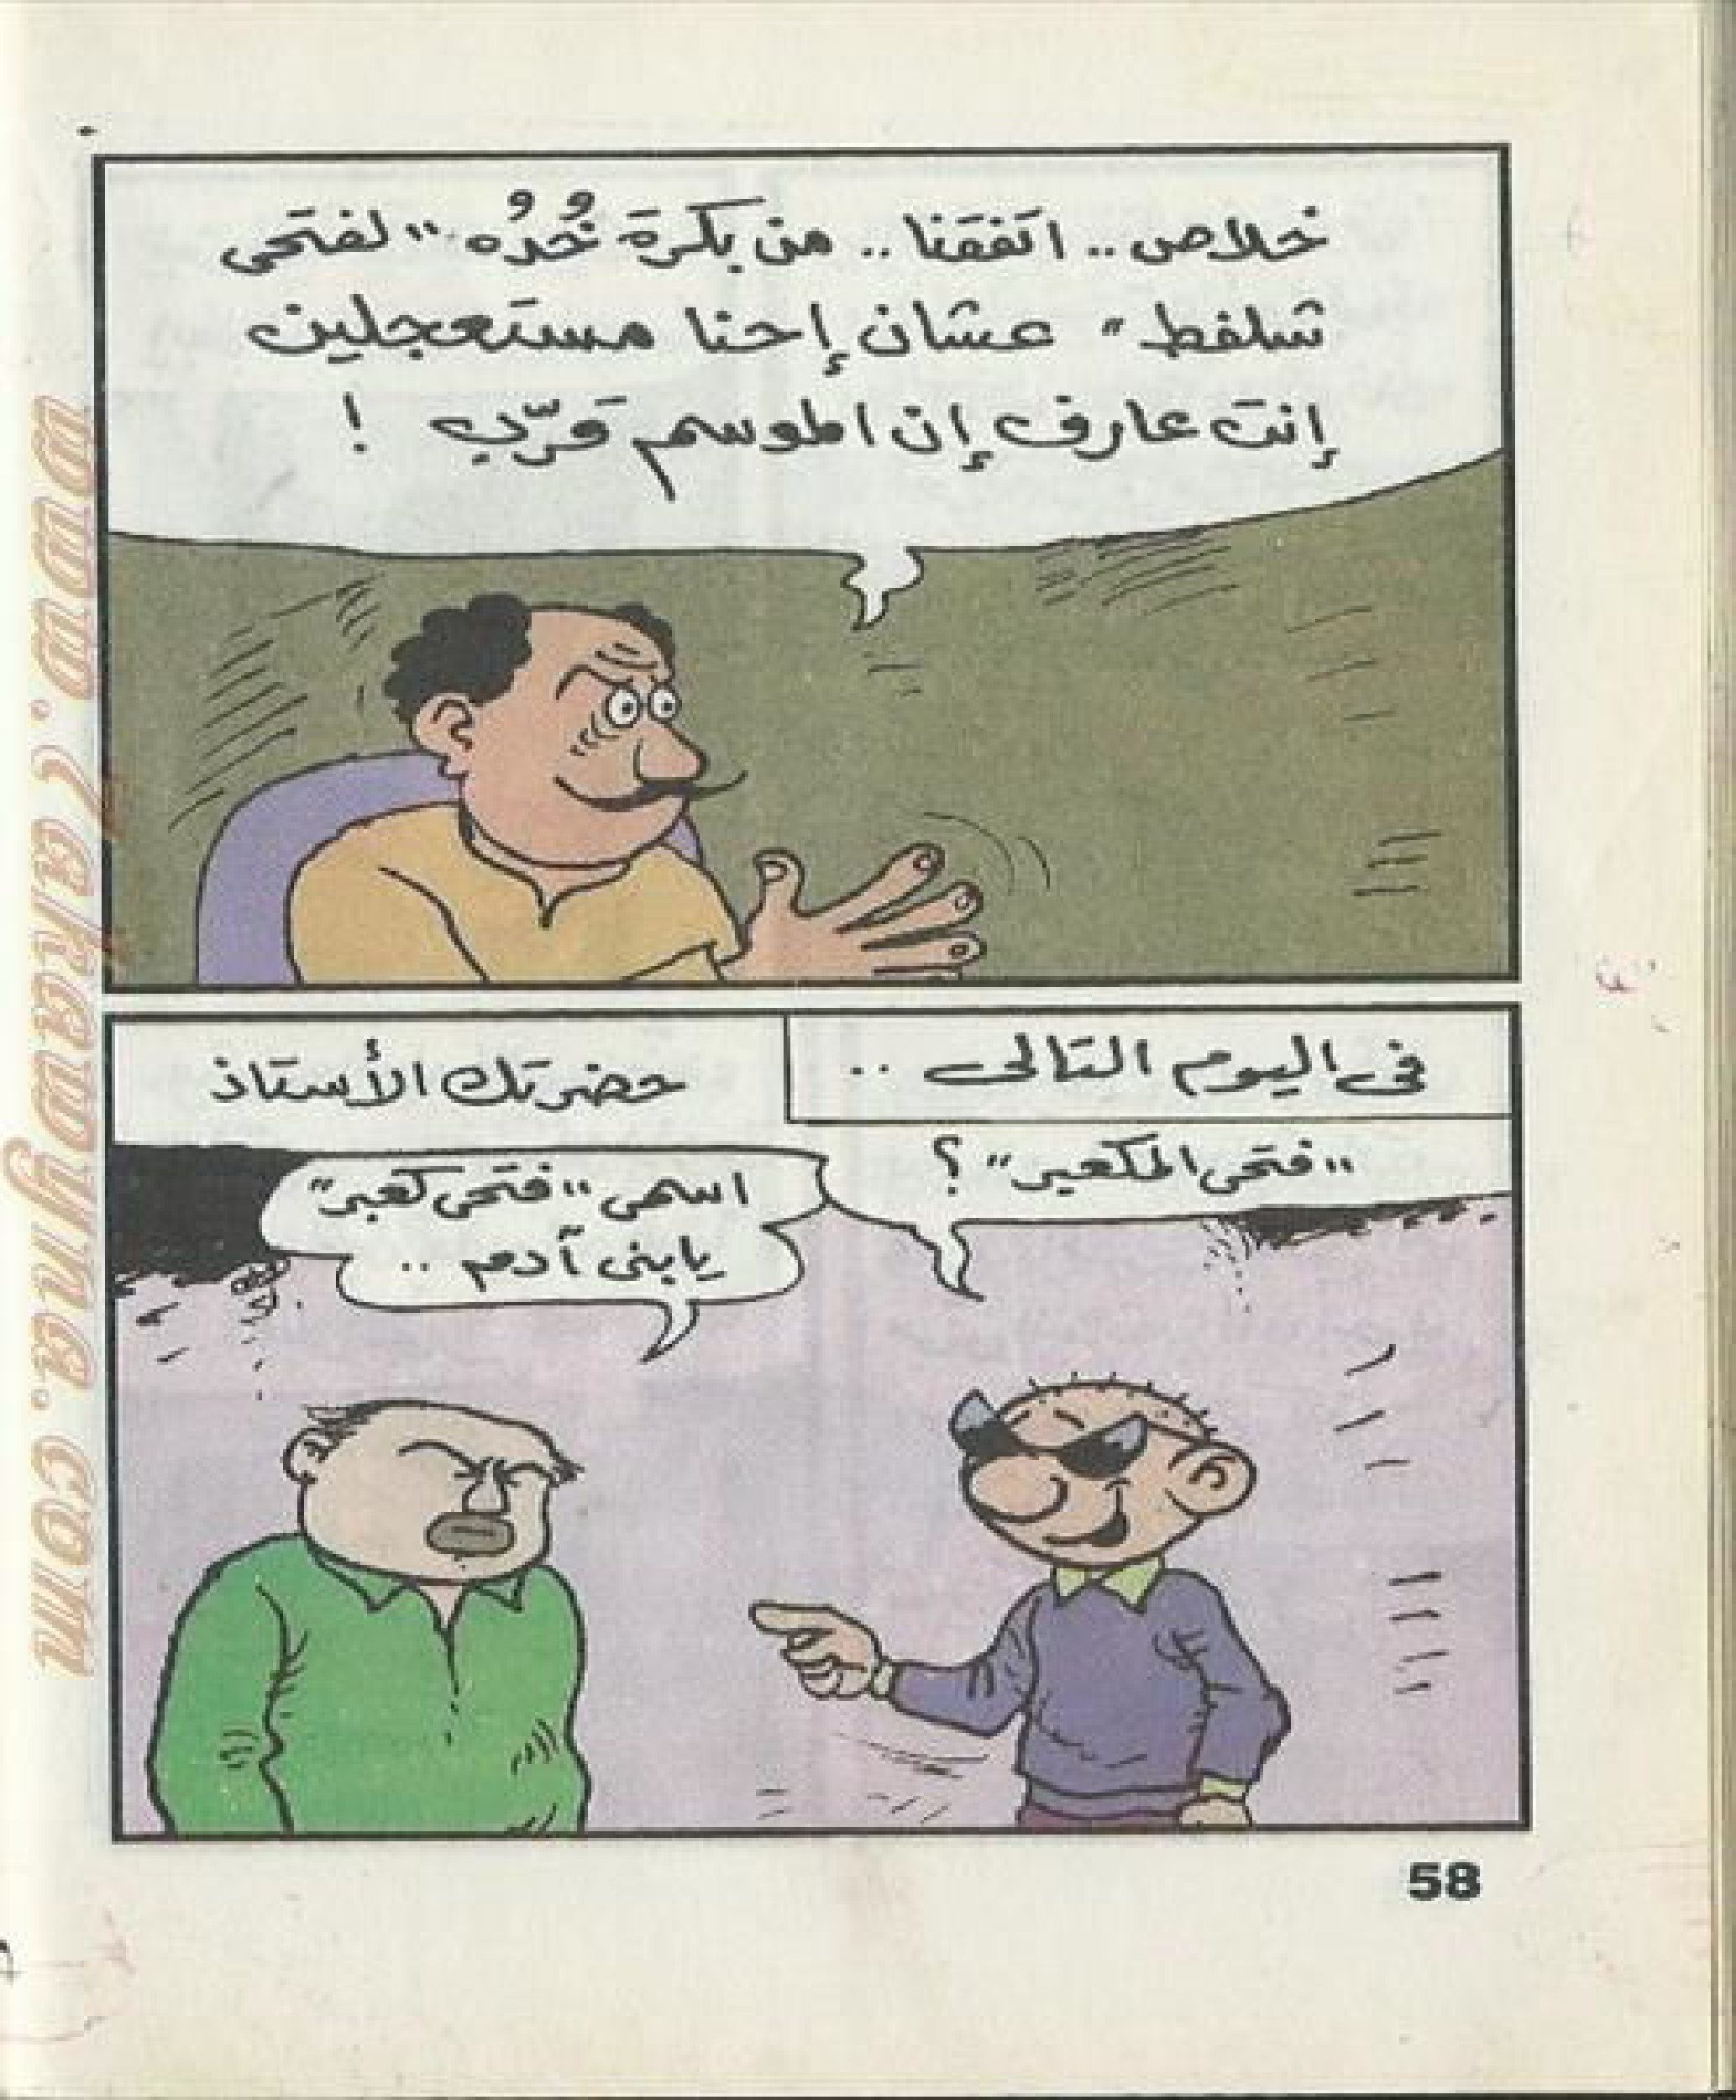 خلاص.. اتفقنا.. من بكرة خُدُه "لفتحى
شلفط" عشان إحنا مستعجلين
إنت عارف إن الموسم قرّب !
فى اليوم التالى ..
حضرتك الأستاذ
"فتحى المكعبر" ؟
اسمى "فتحى كعبر"
يابنى آدم ..
58
www.rahawyna.com